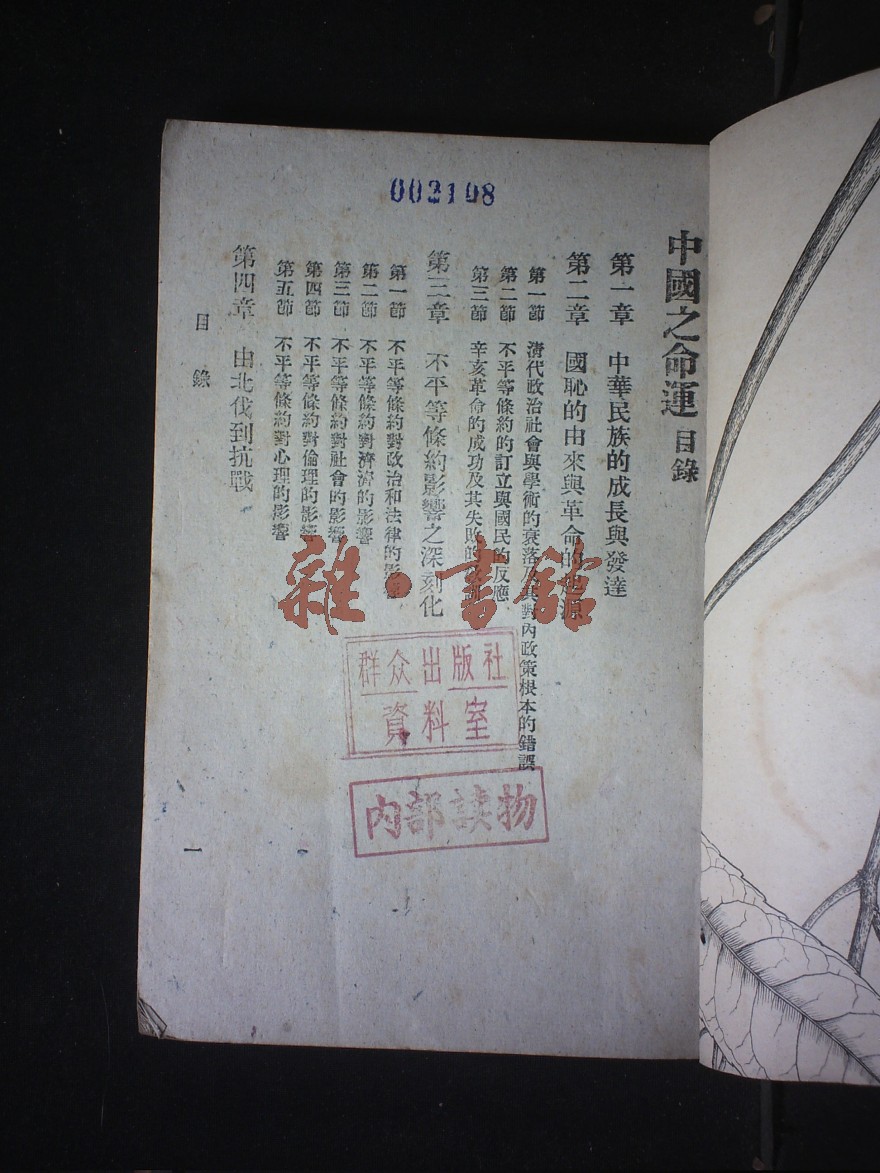 002108
中國之命運 目錄
第一章 中華民族的成長與發達
第二章 國恥的由來與革命的起源
第一節 清代政治社會與學術的衰落及其對內政策根本的錯誤
第二節 不平等條約的訂立與國民的反應
第三節 辛亥革命的成功及其失敗的
第三章 不平等條約影響之深刻化
第一節 不平等條約對政治和法律的影響
第二節 不平等條約對濟濟的影響
第三節 不平等條約對社會的影響
第四節 不平等條約對倫理的影響
第五節 不平等條約對心理的影響
第四章 由北伐到抗戰
目錄
一
雜·書館
群众出版社
資料室
内部读物